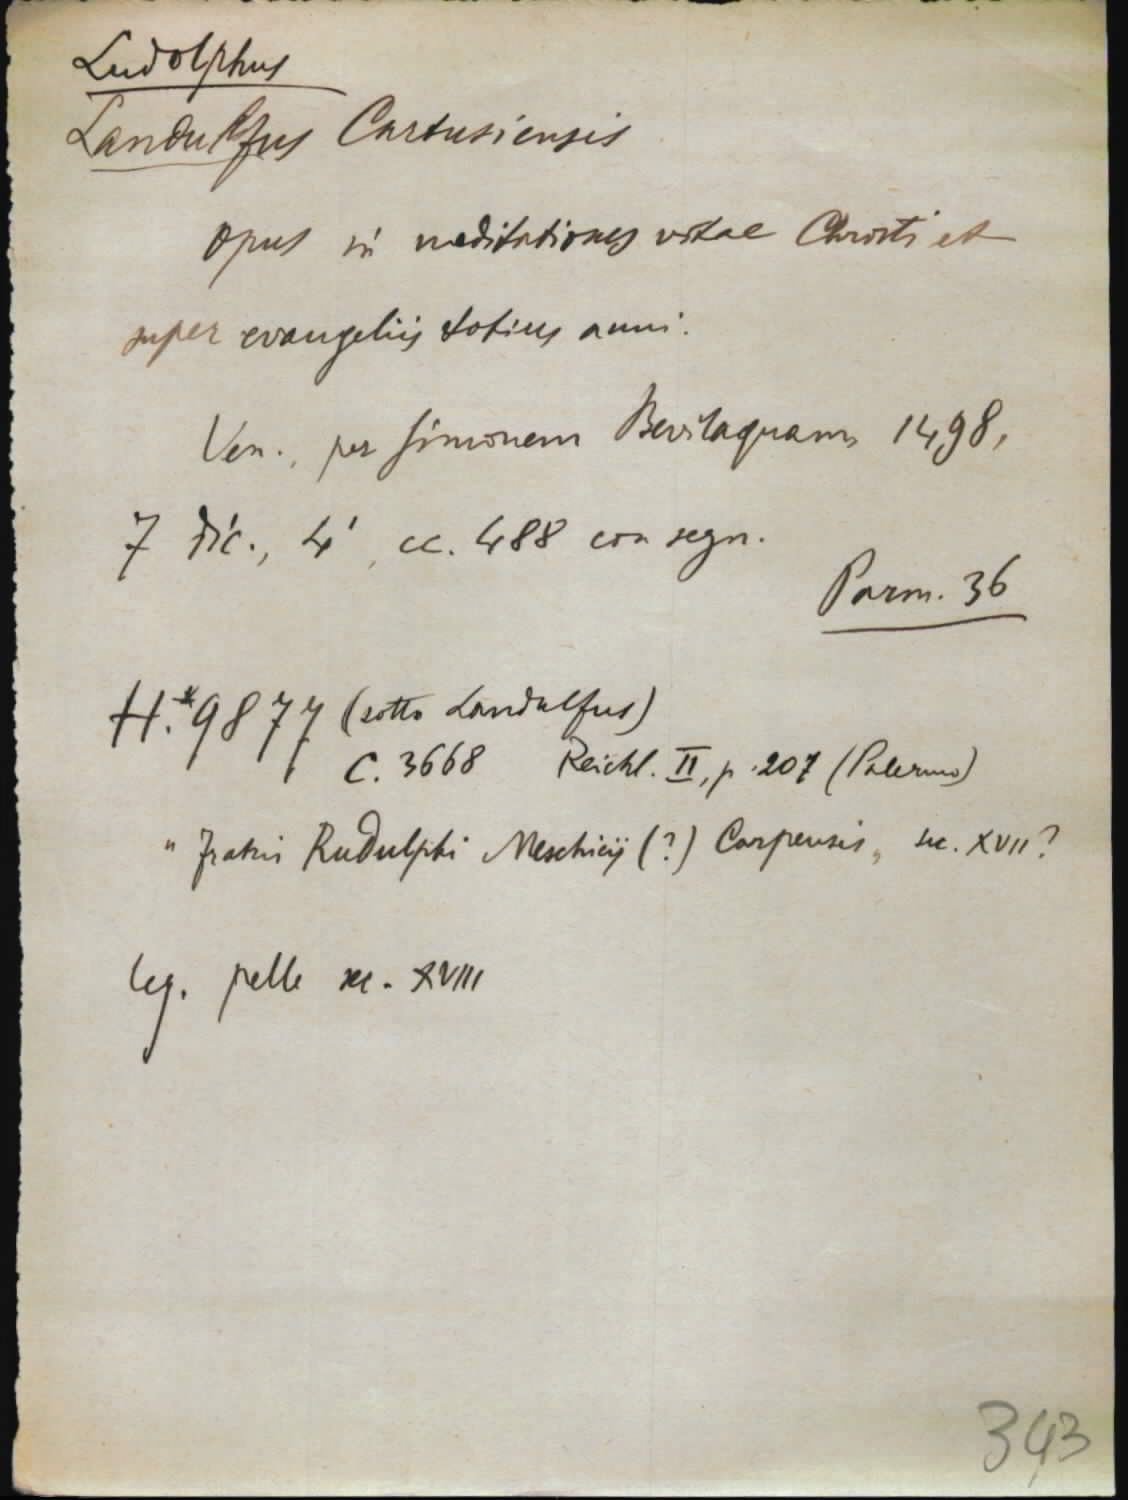 Ludolphus
Landulfus Cartusiensis
Opus in meditationes vitae Christi et
super evangeliis totius anni.
Ven., per Simonem Bevilaquam, 1498,
7 dic., 4°, cc. 488 con segn.
Parm. 36
H.*9877 (sotto Landulfus)
C. 3668 Reichl. II, p. 207 (Palermo)
" Fratris Rudulphi Meschicij (?) Carpensis, sec. XVII?
leg. pelle sec. XVIII
343